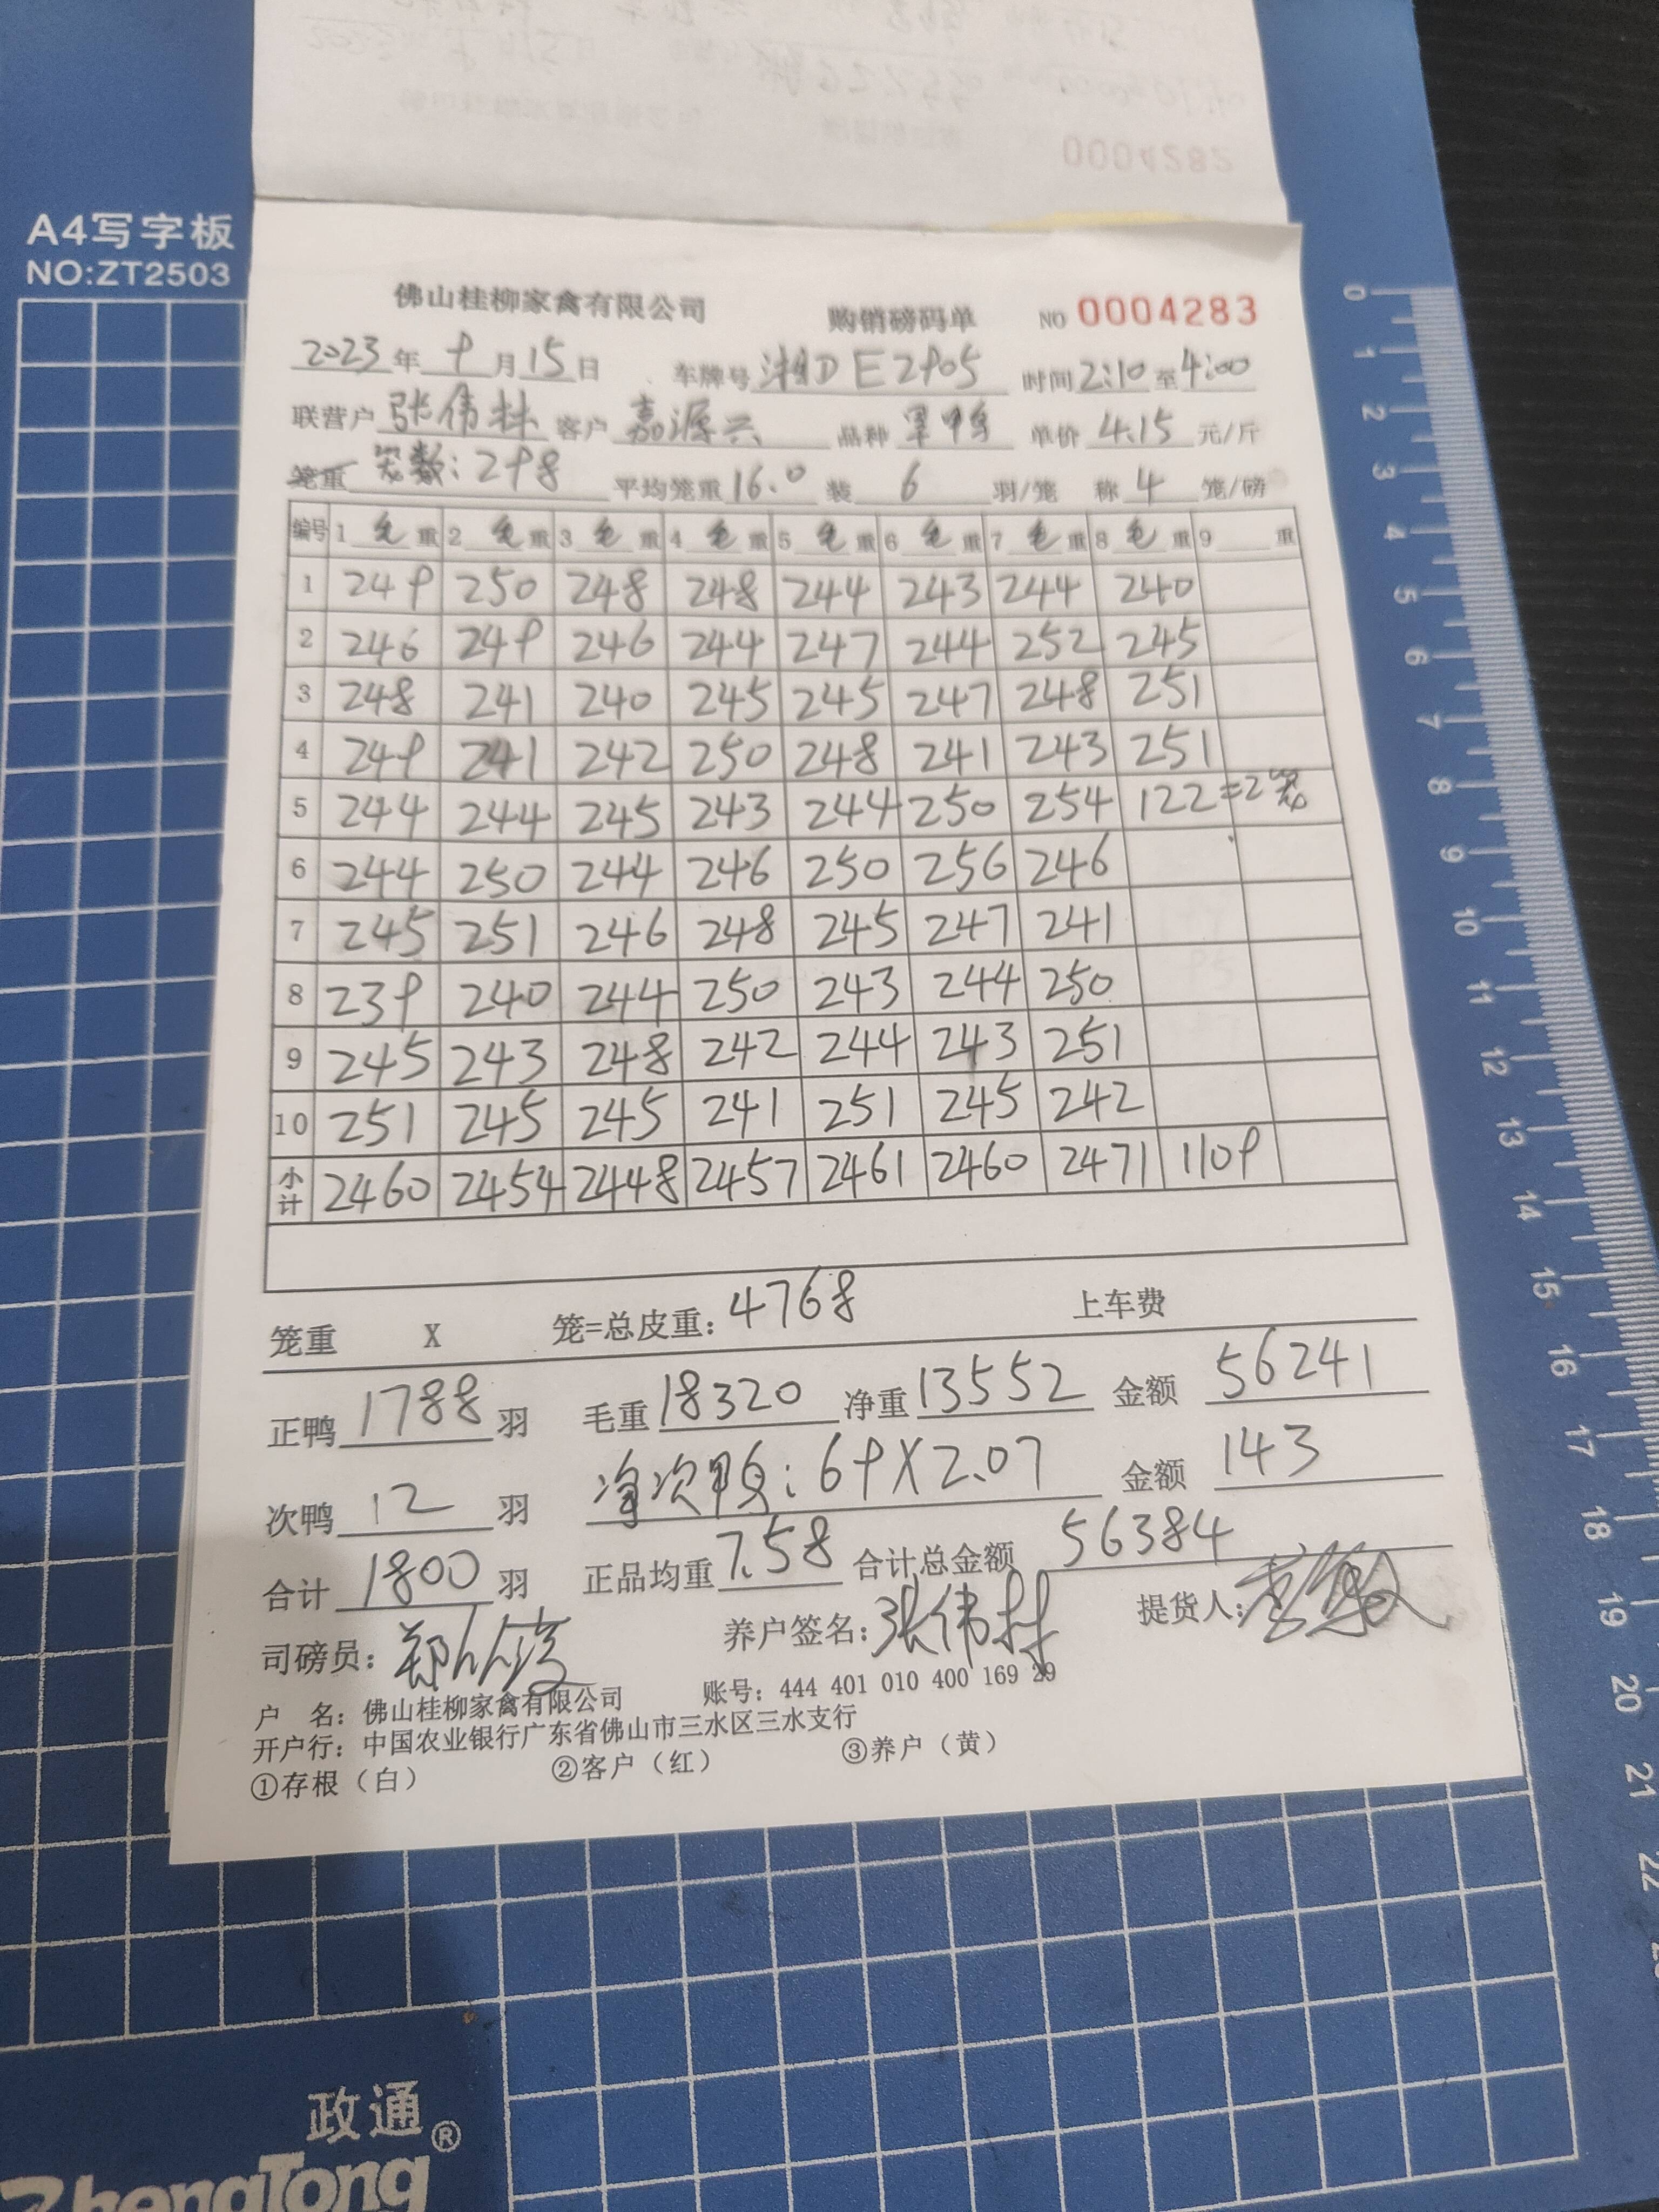 0004282
A4写字板
NO:ZT2503
佛山桂柳家禽有限公司 购销磅码单 NO 0004283
2023年9月15日 车牌号 湘D E2905 时间 2:10 至 4:00
联营户 张伟林 客户 嘉源兴 品种 单价 4.15 元/斤
笼重 笼数:298 平均笼重 16.0 装 6 羽/笼 称 4 笼/磅
编号 1 毛 重 2 毛 重 3 毛 重 4 毛 重 5 毛 重 6 毛 重 7 毛 重 8 毛 重 9 重
1 249 250 248 248 244 243 244 240
2 246 249 246 244 247 244 252 245
3 248 241 240 245 245 247 248 251
4 249 241 242 250 248 241 243 251
5 244 244 245 243 244 250 254 122=2笼
6 244 250 244 246 250 256 246
7 245 251 246 248 245 247 241
8 239 240 244 250 243 244 250
9 245 243 248 242 244 243 251
10 251 245 245 241 251 245 242
小计 2460 2454 2448 2457 2461 2460 2471 1109
笼重 X 笼=总皮重: 4768 上车费
正鸭 1788 羽 毛重 18320 净重 13552 金额 56241
次鸭 12 羽 净次鸭:69X2.07 金额 143
合计 1800 羽 正品均重 7.58 合计总金额 56384
司磅员: 养户签名: 张伟林 提货人:
户 名: 佛山桂柳家禽有限公司 账号: 444 401 010 400 169 29
开户行: 中国农业银行广东省佛山市三水区三水支行
①存根（白） ②客户（红） ③养户（黄）
0 1 2 3 4 5 6 7 8 9 10 11 12 13 14 15 16 17 18 19 20 21 22
政通®
ZhengTong